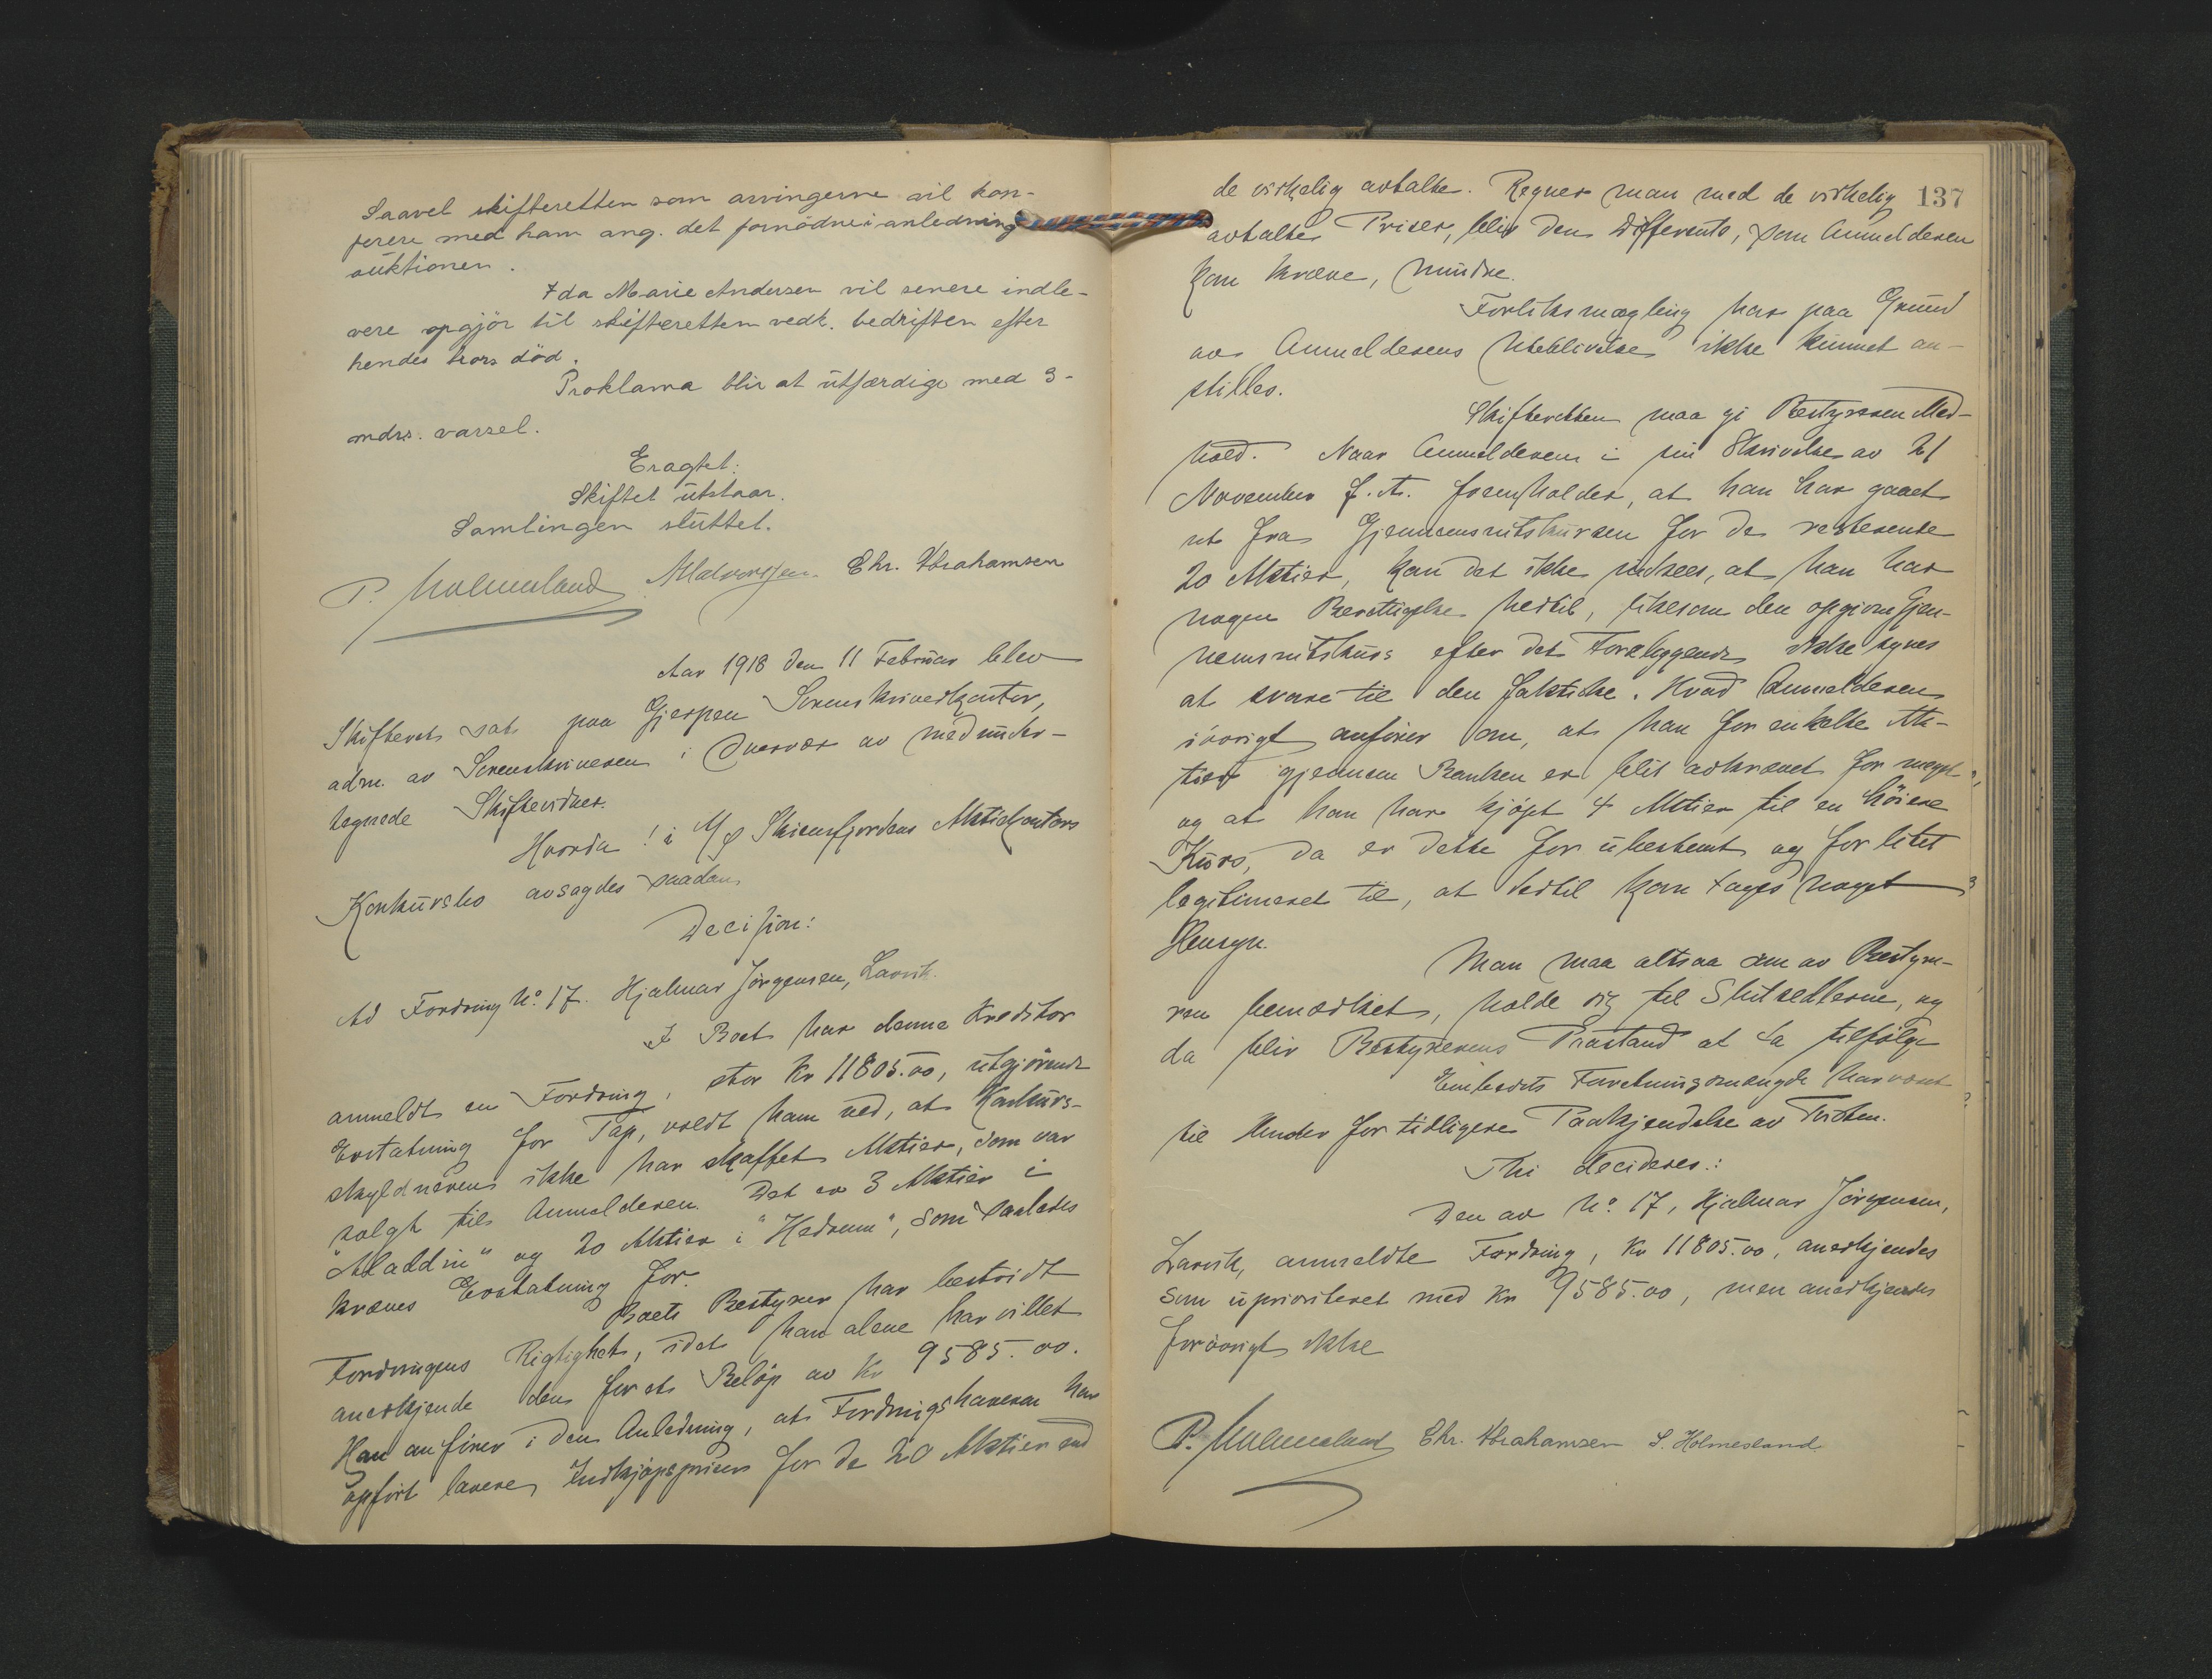 Saavel skifteretten som arvingerne vil kon-
ferere med ham ang. det fornødne i anledning
auktionen.
Ida Marie Andersen vil senere indle-
vere opgjør til skifteretten vedk. bedriften efter
hendes brors død.
Proklama blir at utfærdige med 3-
mdrs. varsel.
Eragtet:
Skiftet utstaar.
Samlingen sluttet.
P. Holmesland Halvorsen. Chr. Abrahamsen
Aar 1918 den 11 Februar blev
Skifteret sat paa Gjerpen Sorenskriverkontor,
adm. av Sorenskriveren i Overvær av medunder-
tegnede Skiftevidner.
Hvorda! i A/S Skiensfjordens Aktiekontors
Konkursbo avsagdes saadan
Decision:
Ad Fordring No. 17. Hjalmar Jørgensen, Larvik.
I Boet har denne Kreditor
anmeldt en Fordring, stor Kr 11805.00, utgjørende
Erstatning for Tap, voldt ham ved, at Konkurs-
skyldneren ikke har skaffet Aktier, som var
solgt til Anmelderen. Det er 3 Aktier i
"Aladdin" og 20 Aktier i "Hedrum", som saaledes
kræves Erstatning for.
Boets Bestyrer har bestridt
Fordringens Rigtighet, idet han alene har villet
anerkjende den for et Beløp av Kr 9585.00.
Han anfører i den Anledning, at Fordringshaveren har
opført lavere Indkjøpspriser for de 20 Aktier end
137
de virkelig avtalte. Regner man med de virkelig
avtalte Priser, blir den Differents, som Anmelderen
kan kræve, mindre.
Forliksmægling har paa Grund
av Anmelderens Uteblivelse ikke kunnet an-
stilles.
Skifteretten maa gi Bestyreren Med-
hold. Naar Anmelderen i sin Skrivelse av 21
November f. A. fremholder, at han har gaaet
ut fra Gjennemsnitskursen for de resterende
20 Aktier, kan det ikke indsees, at han har
nogen Berettigelse hertil, likesom den opgivne Gjen-
nemsnitskurs efter det Foreliggende ikke synes
at svare til den faktiske. Hvad Anmelderen
iøvrigt anfører om, at han for enkelte Ak-
tier gjennem Banken er blit avkrævet for meget,
og at han har kjøpt 4 Aktier til en høiere
Kurs, da er dette for ubestemt og for litet
legitimeret til, at dertil kan tages noget
Hensyn.
Man maa altsaa som av Bestyre-
ren bemerket, holde sig til Slutsedlerne, og
da blir Bestyrerens Paastand at ta tilfølge
Embedets Forretningsmængde har været
til Hinder for tidligere Paakjendelse av Tvisten.
Thi decideres:
Den av No. 17, Hjalmar Jørgensen,
Larvik, anmeldte Fordring, Kr 11805.00, anerkjendes
som uprioritert med Kr 9585.00, men anerkjendes
forøvrigt ikke
P. Holmesland Chr. Abrahamsen S. Holmesland